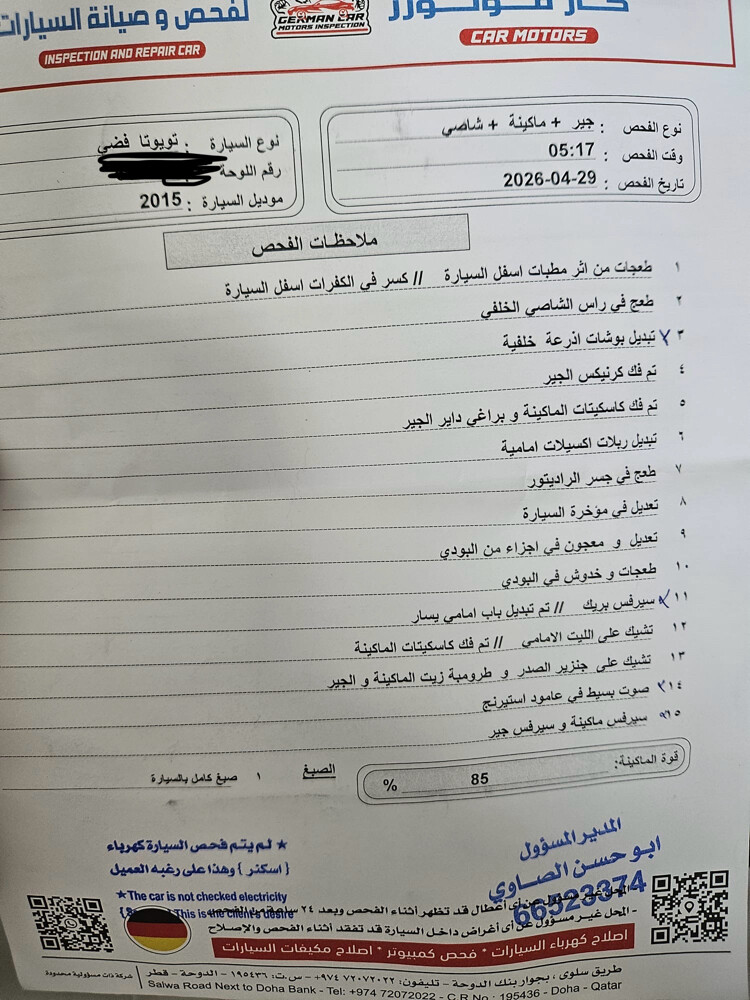 كار موتورز
CAR MOTORS
GERMAN CAR
MOTORS INSPECTION
لفحص و صيانة السيارات
INSPECTION AND REPAIR CAR
نوع الفحص : جير + ماكينة + شاصي
وقت الفحص : 05:17
تاريخ الفحص : 2026-04-29
نوع السيارة : تويوتا فضي
رقم اللوحة
موديل السيارة : 2015
ملاحظات الفحص
١ طعجات من اثر مطبات اسفل السيارة // كسر في الكفرات اسفل السيارة
٢ طعج في راس الشاصي الخلفي
٣ تبديل بوشات اذرعة خلفية
٤ تم فك كرنيكس الجير
٥ تم فك كاسكيتات الماكينة و براغي داير الجير
٦ تبديل ربلات اكسيلات امامية
٧ طعج في جسر الراديتور
٨ تعديل في مؤخرة السيارة
٩ تعديل و معجون في اجزاء من البودي
١٠ طعجات و خدوش في البودي
١١ سيرفس بريك // تم تبديل باب امامي يسار
١٢ تشيك على الليت الامامي // تم فك كاسكيتات الماكينة
١٣ تشيك على جنزير الصدر و طرومبة زيت الماكينة و الجير
١٤ صوت بسيط في عامود استيرنج
١٥ سيرفس ماكينة و سيرفس جير
قوة الماكينة: 85 %
الصبغ ١ صبغ كامل بالسيارة
المدير المسؤول
ابو حسن الصاوي
66523374
★ لم يتم فحص السيارة كهرباء
{ اسكنر } وهذا على رغبه العميل
★The car is not checked electricity
This is the client's desire
- المحل غير مسؤول عن أي أعطال قد تظهر أثناء الفحص وبعد ٢٤ ساعة من الفحص
- المحل غير مسؤول عن أي أغراض داخل السيارة قد تفقد أثناء الفحص والإصلاح
اصلاح كهرباء السيارات * فحص كمبيوتر * اصلاح مكيفات السيارات
طريق سلوى ، بجوار بنك الدوحة - تليفون: ٧٢٠٧٢٠٢٢ ٩٧٤+ - س.ت: ١٩٥٤٣٦ - الدوحة - قطر
شركة ذات مسؤولية محدودة
Salwa Road Next to Doha Bank - Tel: +974 72072022 - C.R No.: 195436 - Doha - Qatar